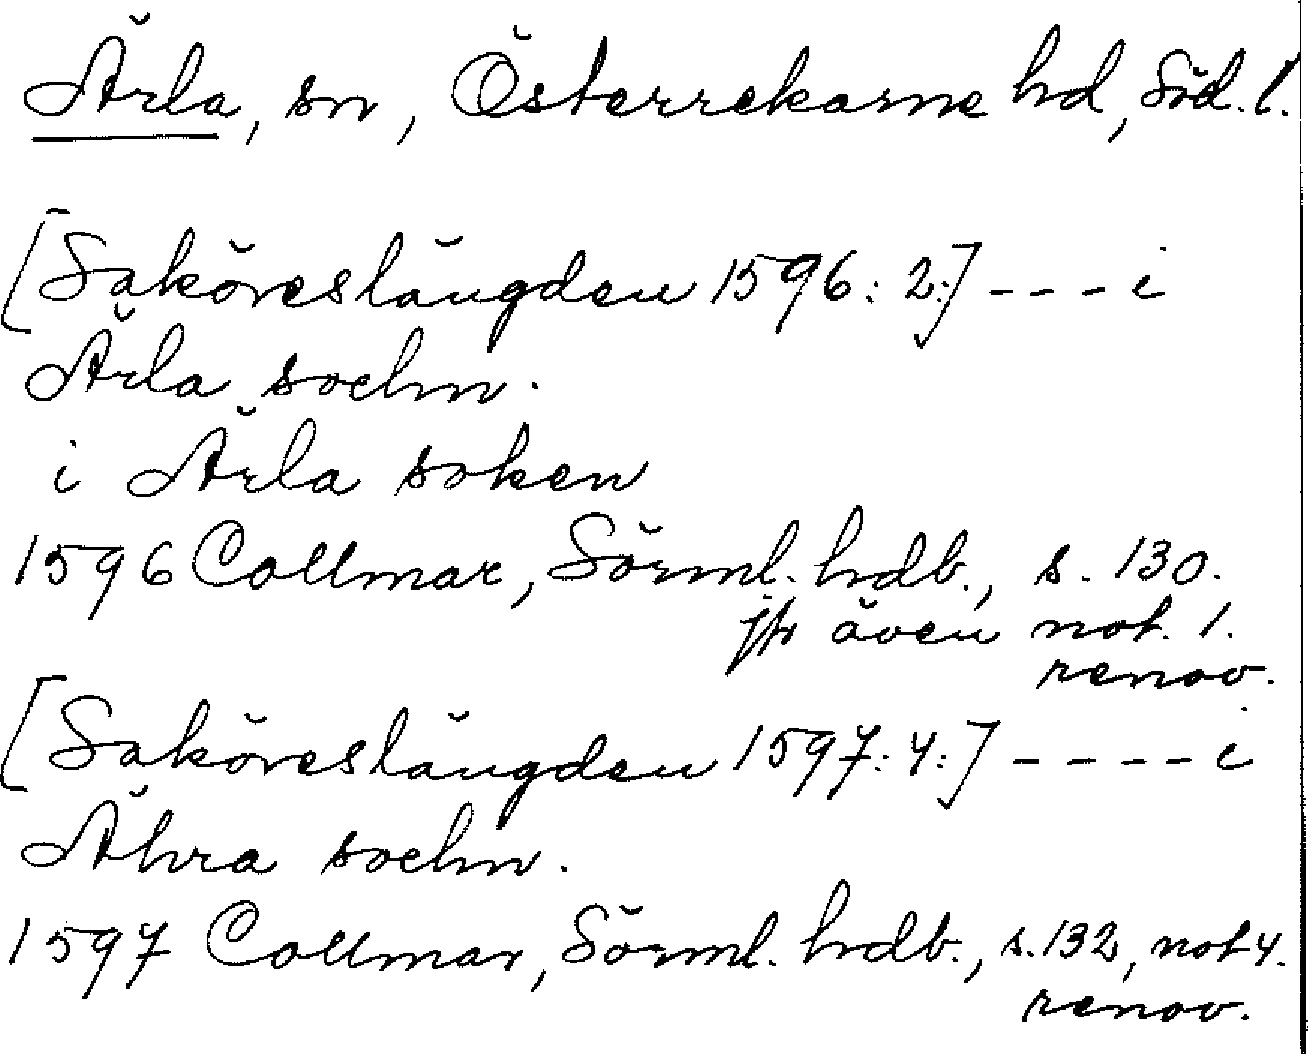 Ärla, sn, Österrekarne hd, Söd. l.
[Saköreslängden 1596: 2:] - - - i
Ärla sochn.
i Ärla soken
1596 Collmar, Sörml. hdb., s. 130.
jfr även not. 1.
renov.
[Saköreslängden 1597: 4:] - - - - i
Ähra sochn.
1597 Collmar, Sörml. hdb., s. 132, not 4.
renov.